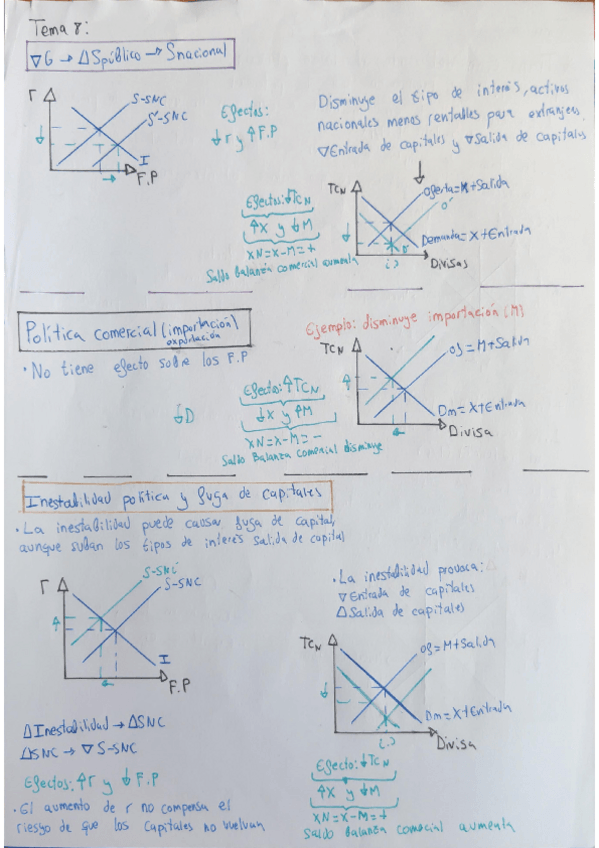 Tema 8:
∇G → ΔSpúblico → Snacional
r
S-SNC
S'-SNC
I
F.P
Efectos:
↓r y ↑F.P
Disminuye el tipo de interés, activos
nacionales menos rentables para extranjeros
∇Entrada de capitales y ∇Salida de capitales
TCN
Oferta=M+Salida
O'
Demanda=X+Entrada
D'
(.)
Divisas
Efectos:↓TCN
↑X y ↓M
XN=X-M=+
Saldo Balanza comercial aumenta
Política comercial (importación)
exportación
· No tiene efecto sobre los F.P
Ejemplo: disminuye importación (M)
TCN
Of=M+Salida
Dm=X+Entrada
Divisa
↓D
Efectos:↑TCN
↓X y ↑M
XN=X-M=-
Saldo Balanza comercial disminuye
Inestabilidad política y fuga de capitales
· La inestabilidad puede causar fuga de capital,
aunque suban los tipos de interés salida de capital
r
S-SNC'
S-SNC
I
F.P
· La inestabilidad provoca:
∇Entrada de capitales
ΔSalida de capitales
TCN
Of=M+Salida
Dm=X+Entrada
(.)
Divisa
ΔInestabilidad → ΔSNC
ΔSNC → ∇ S-SNC
Efectos: ↑r y ↓F.P
· El aumento de r no compensa el
riesgo de que los Capitales no vuelvan
Efecto:↓TCN
↑X y ↓M
XN=X-M=+
Saldo Balanza comercial aumenta